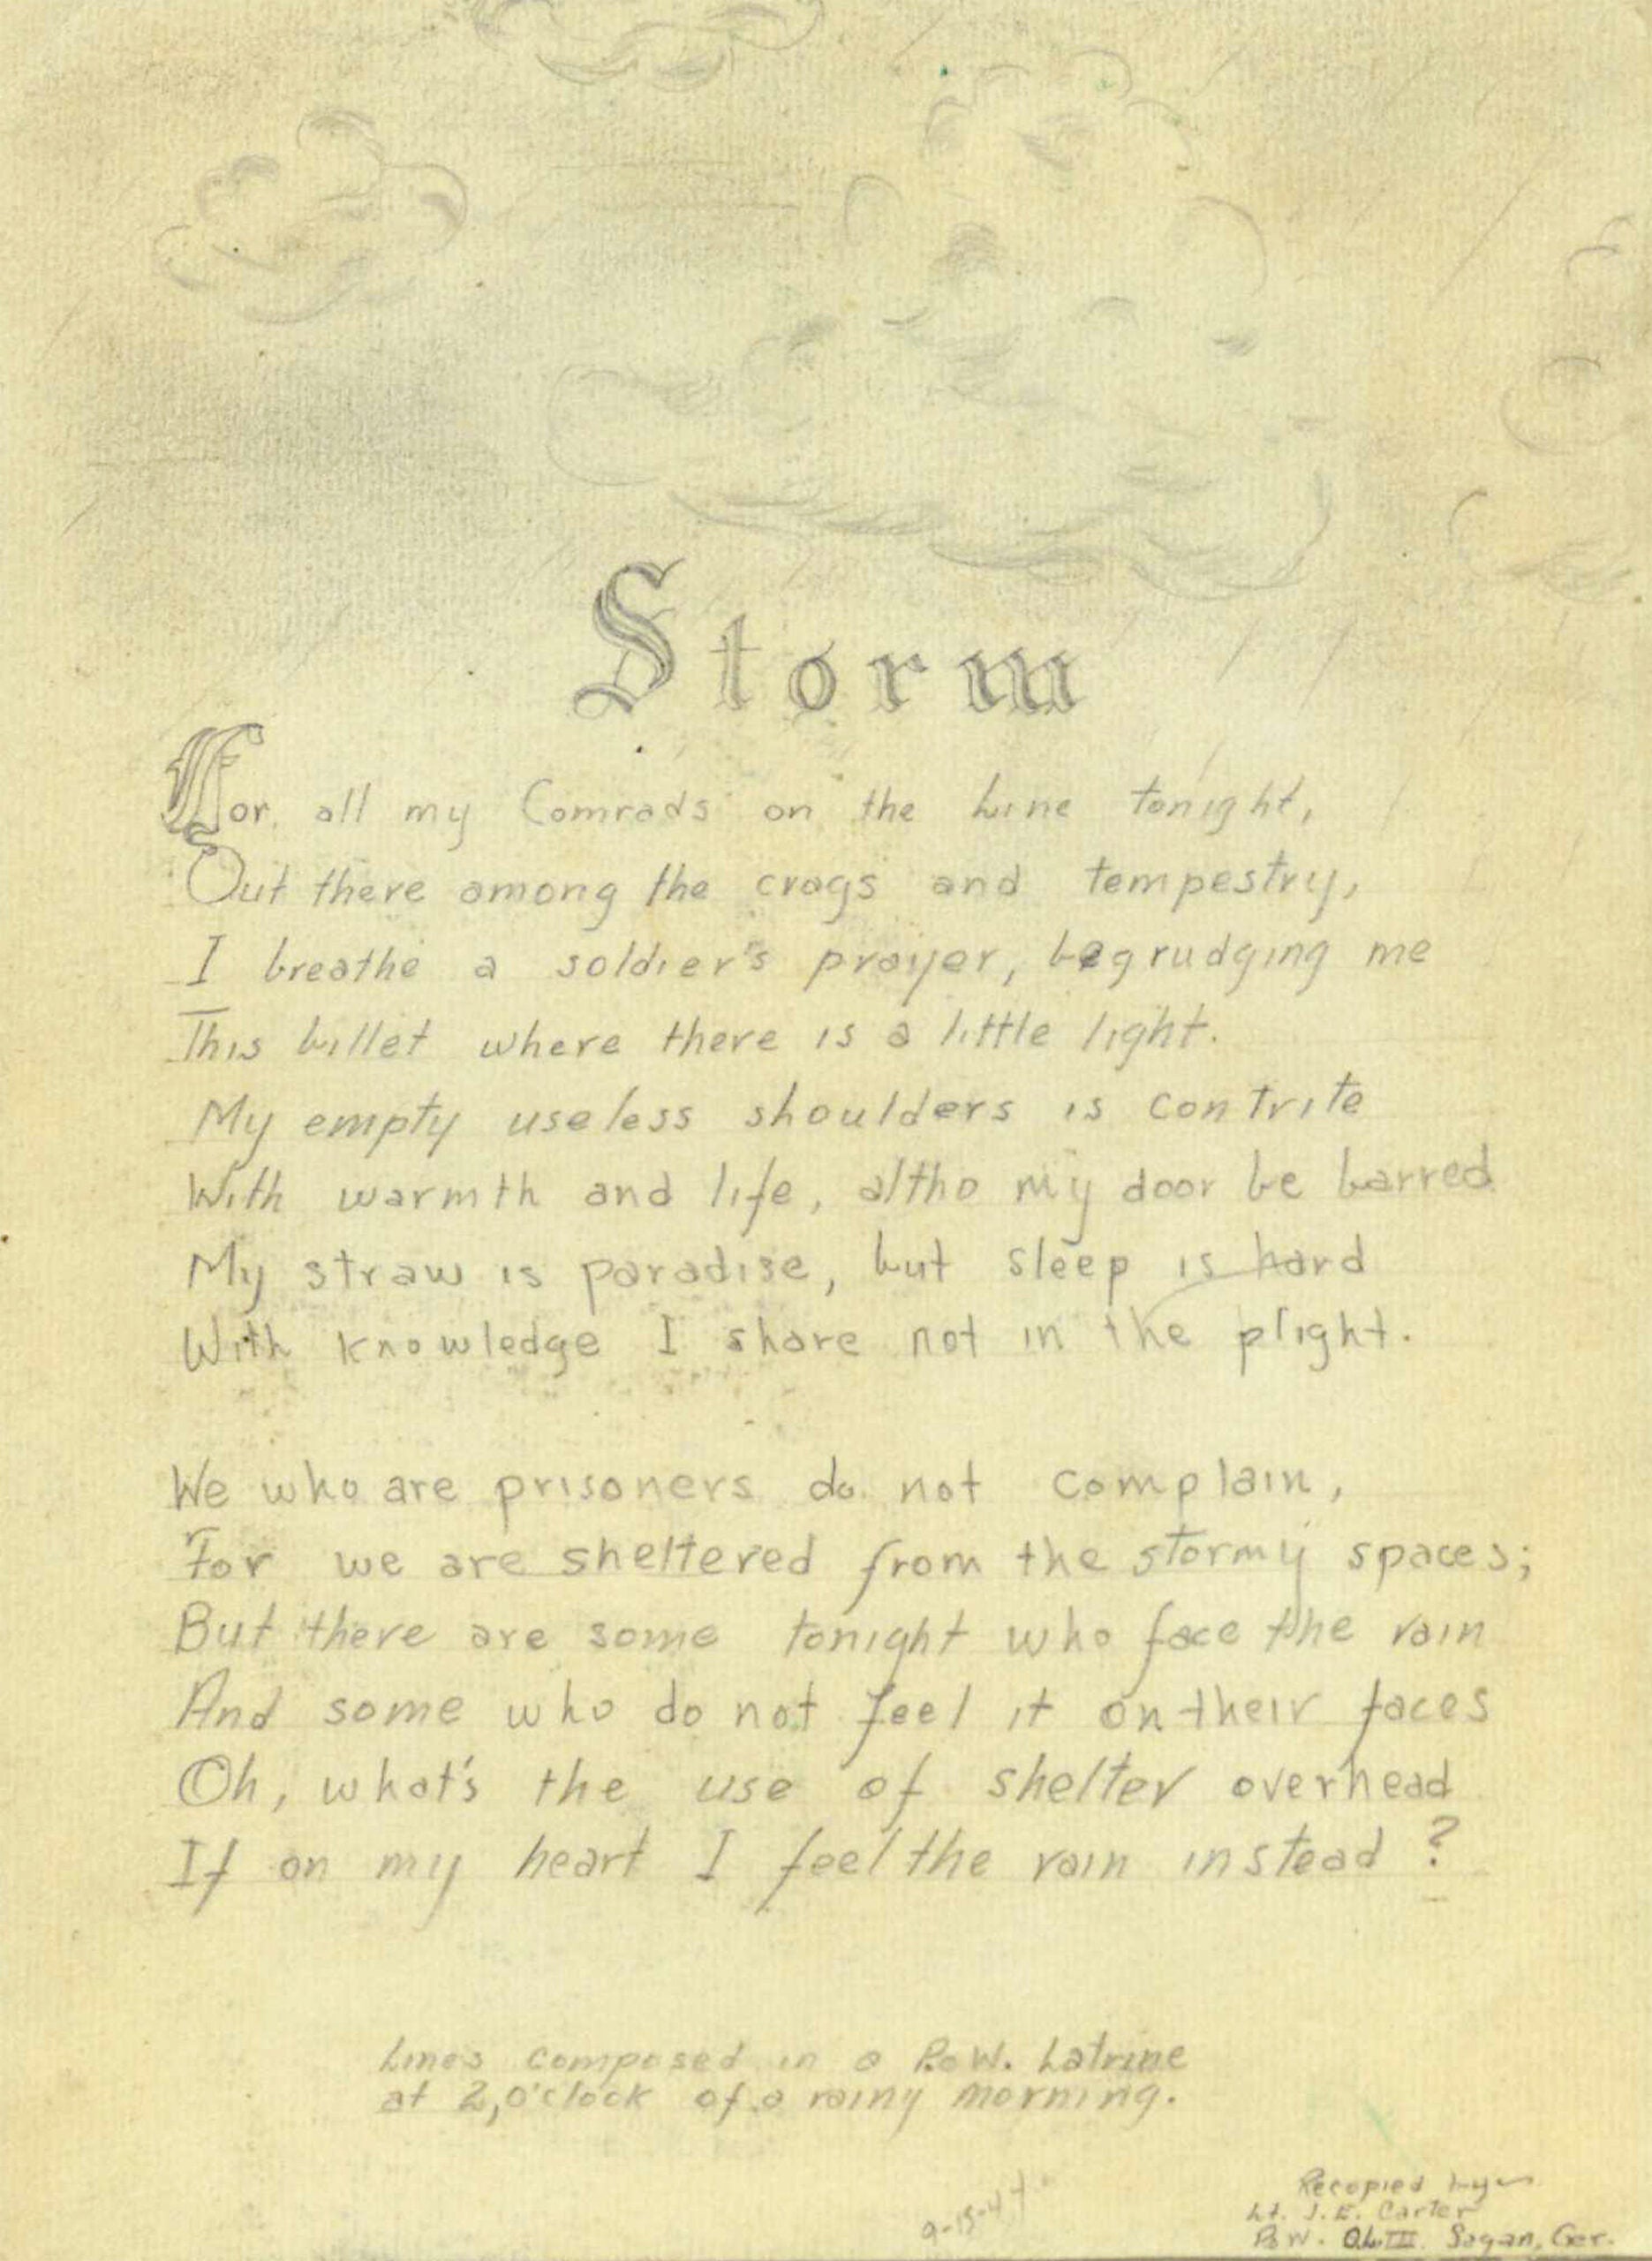 Storm
For all my Comrads on the Line tonight,
Out there among the crags and tempestry,
I breathe a soldier's prayer, begrudging me
This billet where there is a little light.
My empty useless shoulders is contrite
With warmth and life, altho my door be barred
My straw is paradise, but sleep is hard
With knowledge I share not in the plight.
We who are prisoners do not complain,
For we are sheltered from the stormy spaces;
But there are some tonight who face the rain
And some who do not feel it on their faces
Oh, what's the use of shelter overhead
If on my heart I feel the rain instead ?
Lines composed in a P.o.W. Latrine
at 2,o'clock of a rainy morning.
9-15-44
Recopied by
Lt. J. E. Carter
P.o.W. III Sagan, Ger.